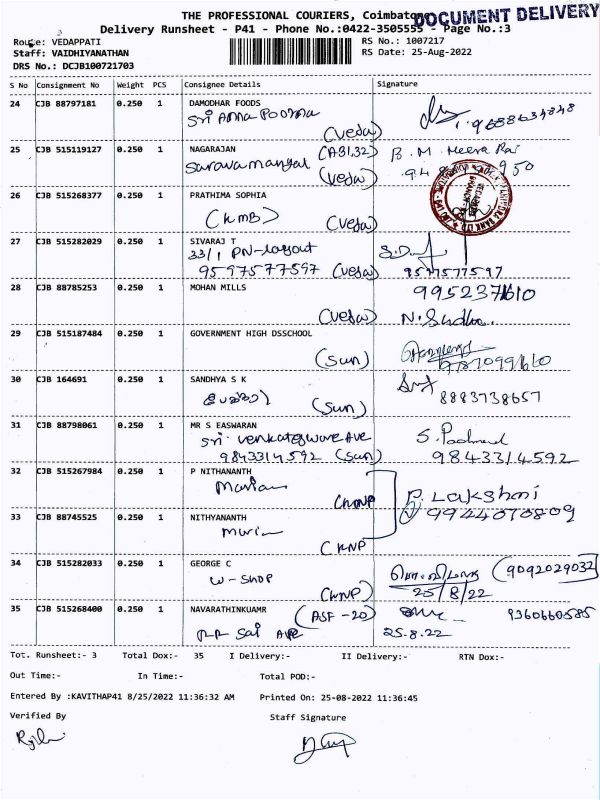 THE PROFESSIONAL COURIERS, Coimbatore
DOCUMENT DELIVERY
Delivery Runsheet - P41 - Phone No.:0422-3505555 - Page No.:3
Route: VEDAPPATI
RS No.: 1007217
Staff: VAIDHIYANATHAN
RS Date: 25-Aug-2022
DRS No.: DCJB100721703
S No Consignment No Weight PCS Consignee Details Signature
24 CJB 88797181 0.250 1 DAMODHAR FOODS
Sri Anna Poorna
(Veda)
25 CJB 515119127 0.250 1 NAGARAJAN (AB1,32) B. M. Meera
Saravamangal
(Veda)
26 CJB 515268377 0.250 1 PRATHIMA SOPHIA
(KMB) (Veda)
27 CJB 515282029 0.250 1 SIVARAJ T
33/1 PN-layout
9597577597 (Veda) 9597577597
28 CJB 88785253 0.250 1 MOHAN MILLS 9952371610
(Veda) N. Sudha
29 CJB 515187484 0.250 1 GOVERNMENT HIGH DSSCHOOL
(Sun)
30 CJB 164691 0.250 1 SANDHYA S K
(Sun) 8883738657
31 CJB 88798061 0.250 1 MR S EASWARAN
Sri Venkateswara Ave
9843314592 (Sun) 9843314592
32 CJB 515267984 0.250 1 P NITHANANTH
(KNP) P. Lakshmi
9944070809
33 CJB 88745525 0.250 1 NITHYANANTH
(KNP)
34 CJB 515282033 0.250 1 GEORGE C
W-SHOP (9092029032)
(KNP) 25/8/22
35 CJB 515268400 0.250 1 NAVARATHINKUAMR (ASF-20) 9360660585
RR Sai Ave 25.8.22
Tot. Runsheet:- 3 Total Dox:- 35 I Delivery:- II Delivery:- RTN Dox:-
Out Time:- In Time:- Total POD:-
Entered By :KAVITHAP41 8/25/2022 11:36:32 AM Printed On: 25-08-2022 11:36:45
Verified By Staff Signature